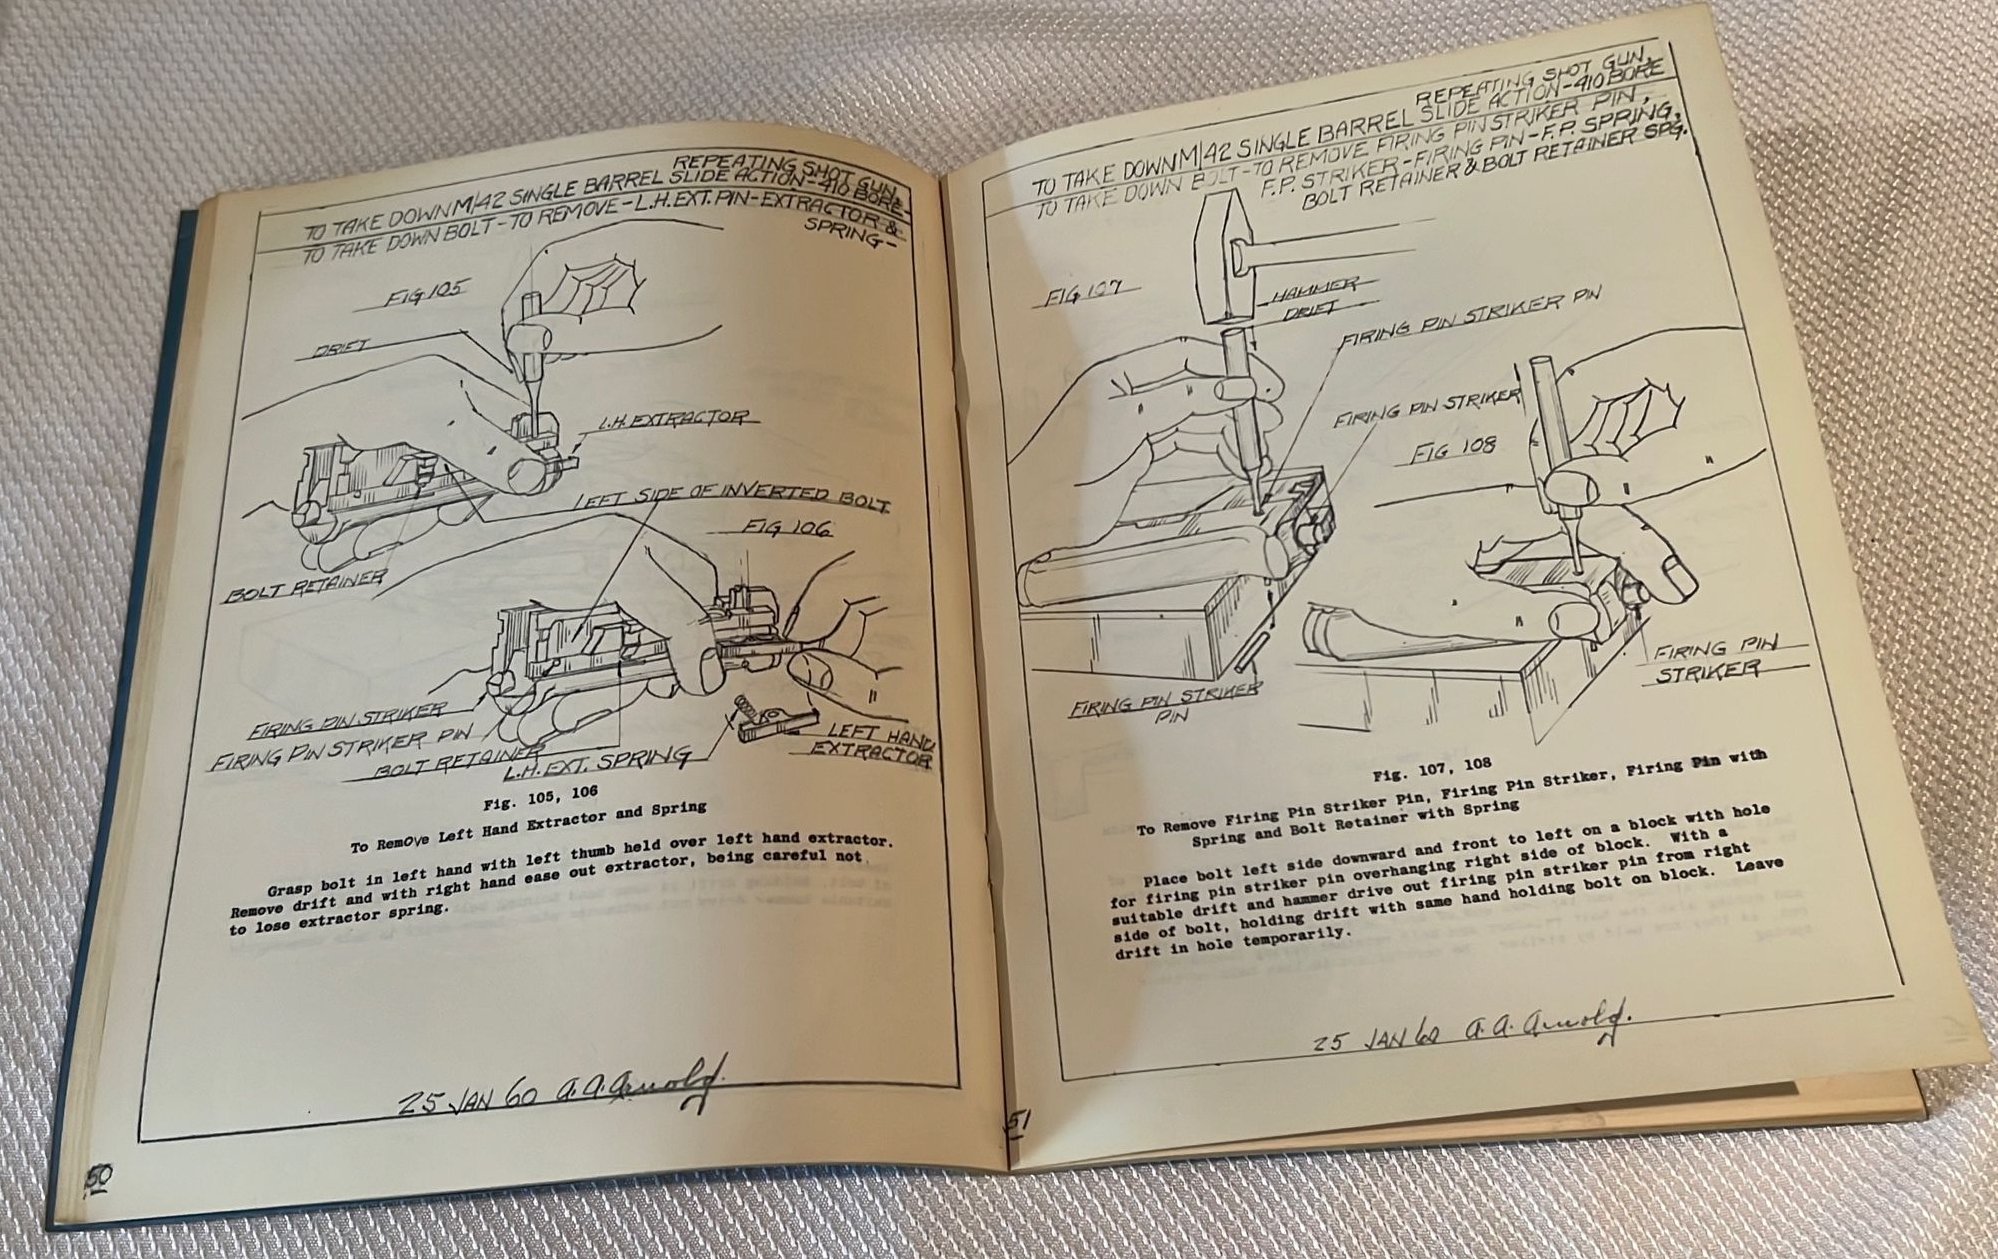 REPEATING SHOT GUN,
TO TAKE DOWN M/42 SINGLE BARREL SLIDE ACTION-410 BORE-
TO TAKE DOWN BOLT-TO REMOVE-L.H.EXT. PIN-EXTRACTOR &
SPRING-
FIG 105
DRIFT
L.H. EXTRACTOR
LEFT SIDE OF INVERTED BOLT
FIG 106
BOLT RETAINER
FIRING PIN STRIKER
FIRING PIN STRIKER PIN
BOLT RETAINER
L.H. EXT. SPRING
LEFT HAND
EXTRACTOR
Fig. 105, 106
To RemOve Left Hand Extractor and Spring
Grasp bolt in left hand with left thumb held over left hand extractor.
Remove drift and with right hand ease out extractor, being careful not
to lose extractor spring.
25 JAN 60 A.A. Arnold.
50
REPEATING SHOT GUN,
TO TAKE DOWN M/42 SINGLE BARREL SLIDE ACTION-410 BORE
TO TAKE DOWN BOLT-TO REMOVE FIRING PIN STRIKER PIN,
F.P. STRIKER-FIRING PIN-F.P. SPRING,
BOLT RETAINER & BOLT RETAINER SPG.
FIG 107
HAMMER
DRIFT
FIRING PIN STRIKER PIN
FIRING PIN STRIKER
FIG 108
FIRING PIN STRIKER
PIN
FIRING PIN
STRIKER
Fig. 107, 108
To Remove Firing Pin Striker Pin, Firing Pin Striker, Firing Pin with
Spring and Bolt Retainer with Spring
Place bolt left side downward and front to left on a block with hole
for firing pin striker pin overhanging right side of block. With a
suitable drift and hammer drive out firing pin striker pin from right
side of bolt, holding drift with same hand holding bolt on block. Leave
drift in hole temporarily.
25 JAN 60 A.A. Arnold.
51